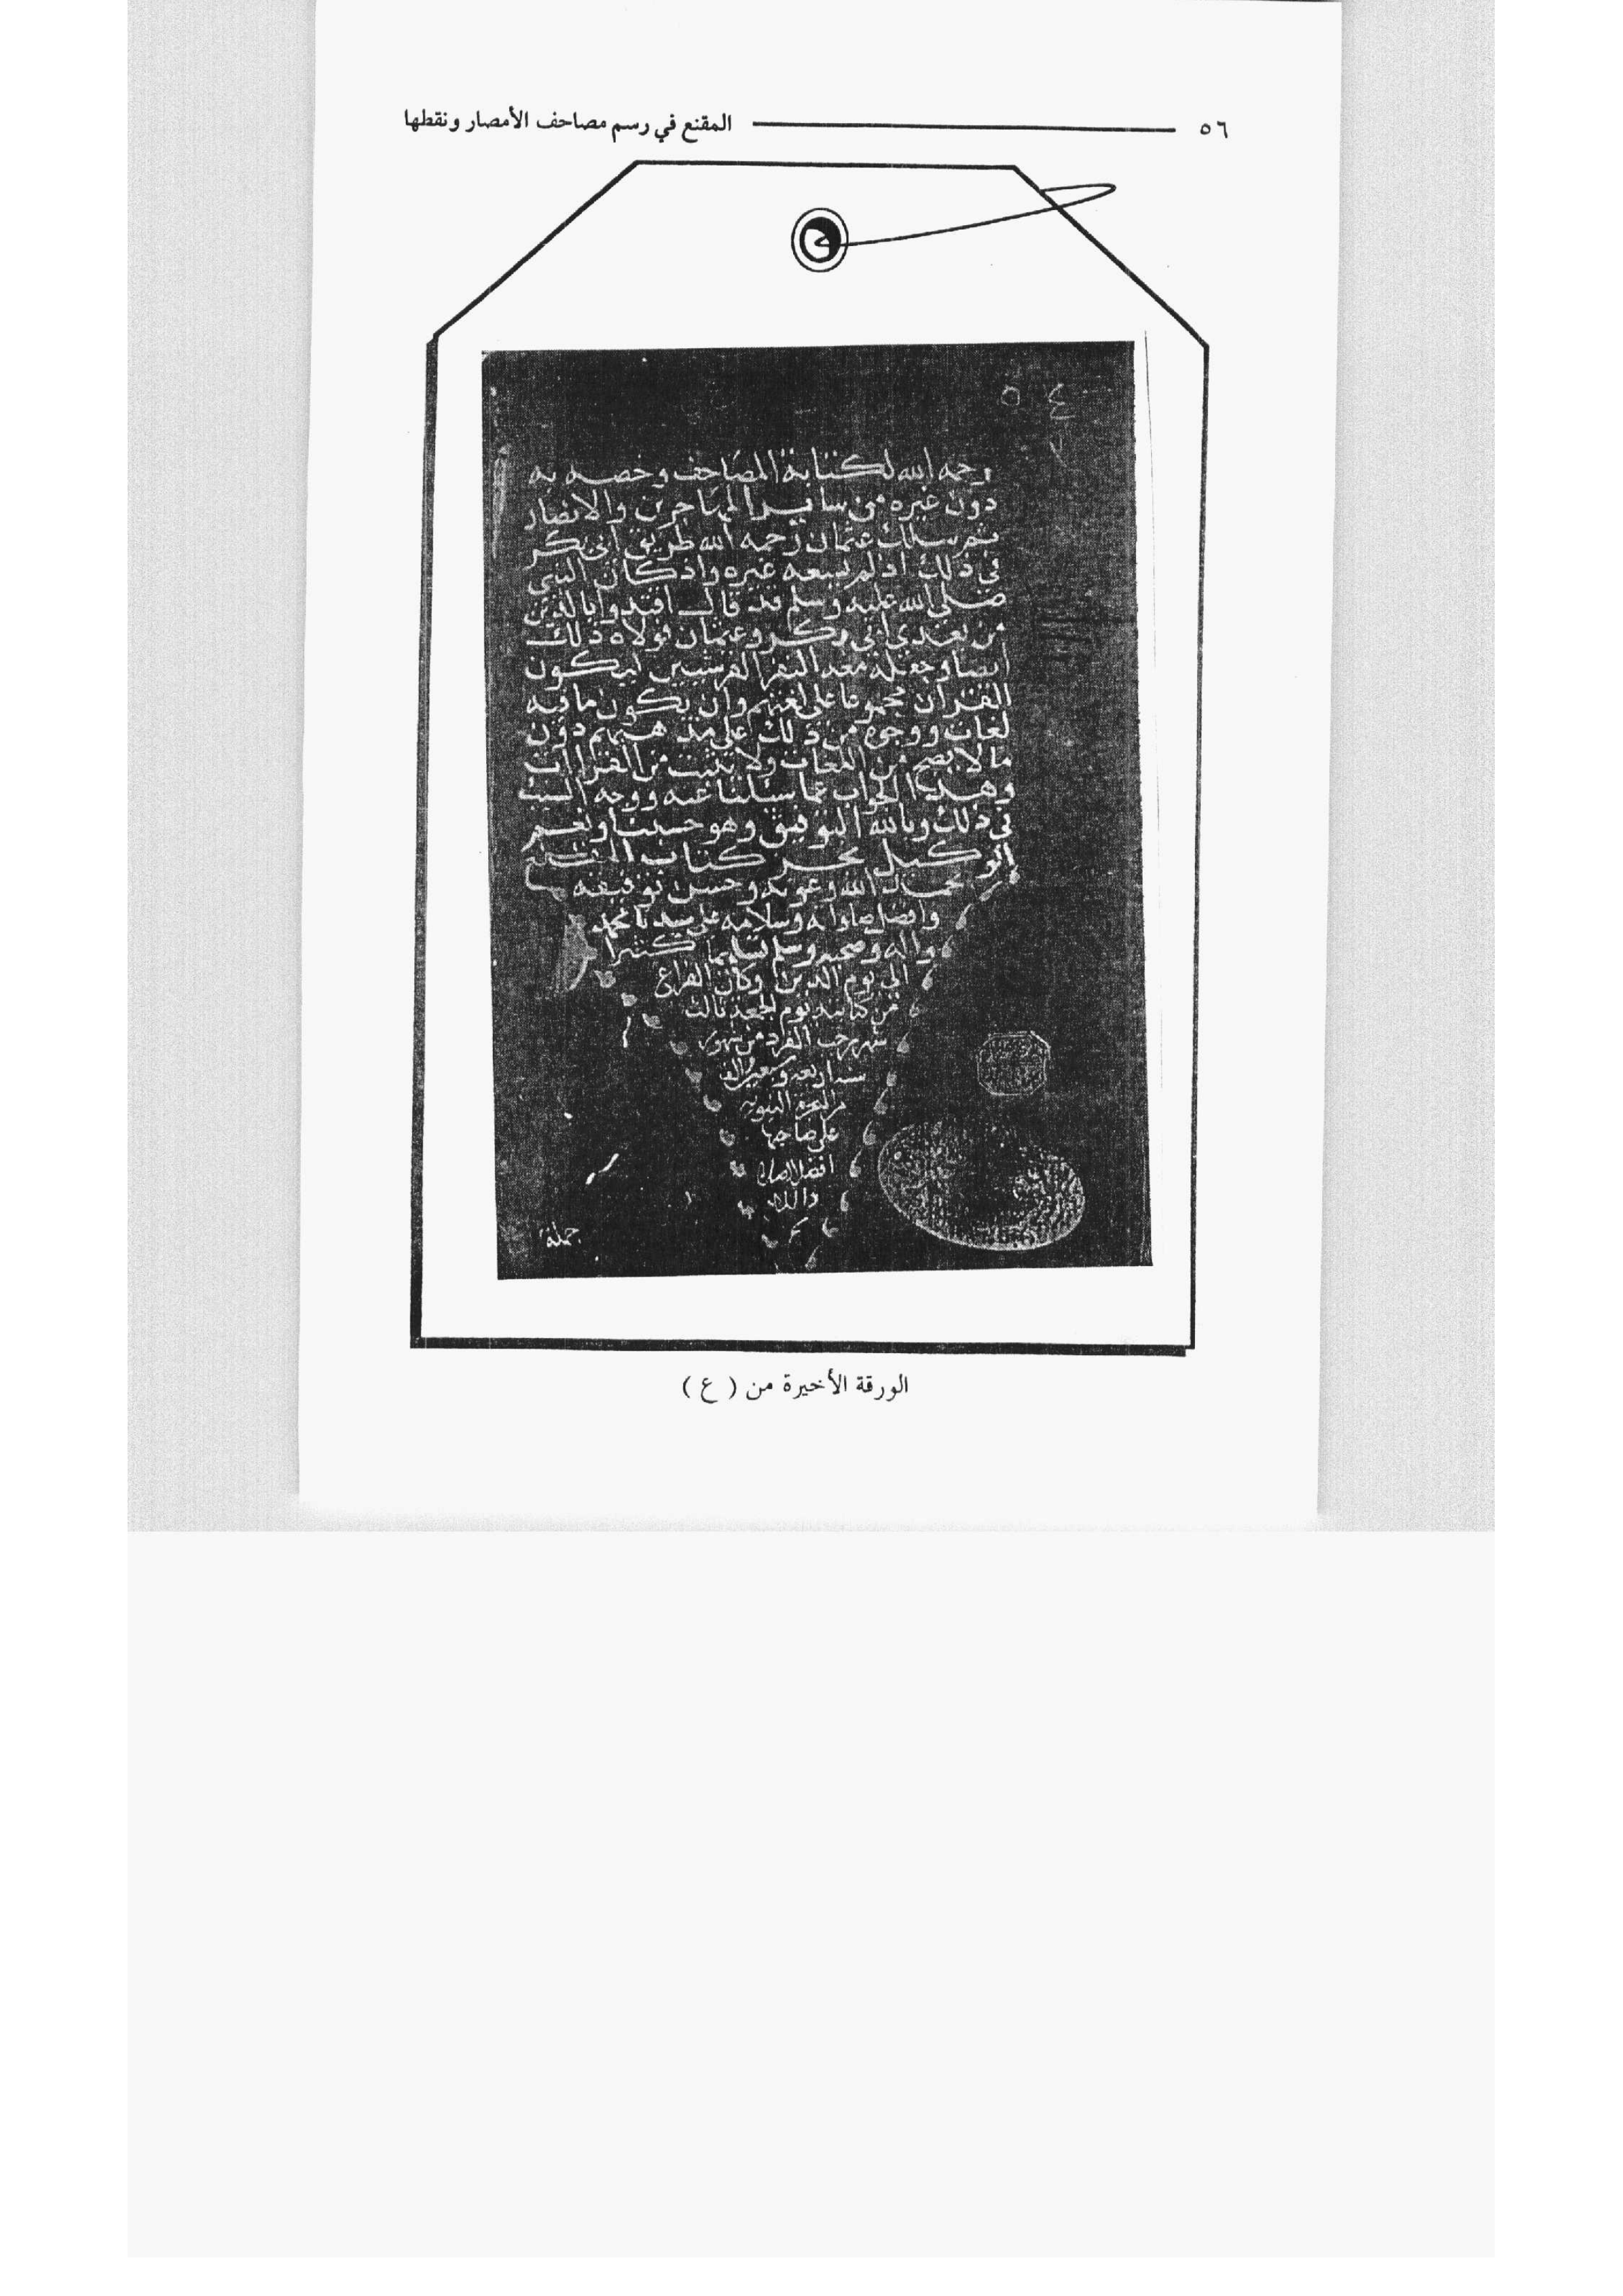 ٥٦ المقنع في رسم مصاحف الأمصار ونقطها
٥٤
رحمه الله لكتابة المصاحف وخصه به
دون غيره من ساير المهاجرين والانصار
ثم سلك عثمان رحمه الله طريق ابي بكر
في ذلك اذ لم يسعه غيره واذ كان النبي
صلى الله عليه وسلم قد قال اقتدوا بالذين
من بعدي ابي بكر وعثمان فولاه ذلك
ايضا وجعل معه النفر القرشيين ليكون
القران مجموعا على لغتهم وان يكون ما فيه
لغات ووجوه من ذلك على مذهبهم دون
ما لا يصح من اللغات ولا يثبت من القراات
وهذا الجواب عما سئلنا عنه ووجه السبب
في ذلك وبالله التوفيق وهو حسبنا ونعم
الوكيل نجز كتاب المقنع
بحمد الله وعونه وحسن توفيقه
وافضل صلواته وسلامه على سيدنا محمد
واله وصحبه وسلم تسليما كثيرا
الى يوم الدين وكان الفراغ
من كتابته يوم الجمعة ثالث
شهر رجب الفرد من شهور
سنة اربعة والف
من الهجرة النبوية
على صاحبها
افضل الصلاة
جملة
الورقة الأخيرة من ( ع )